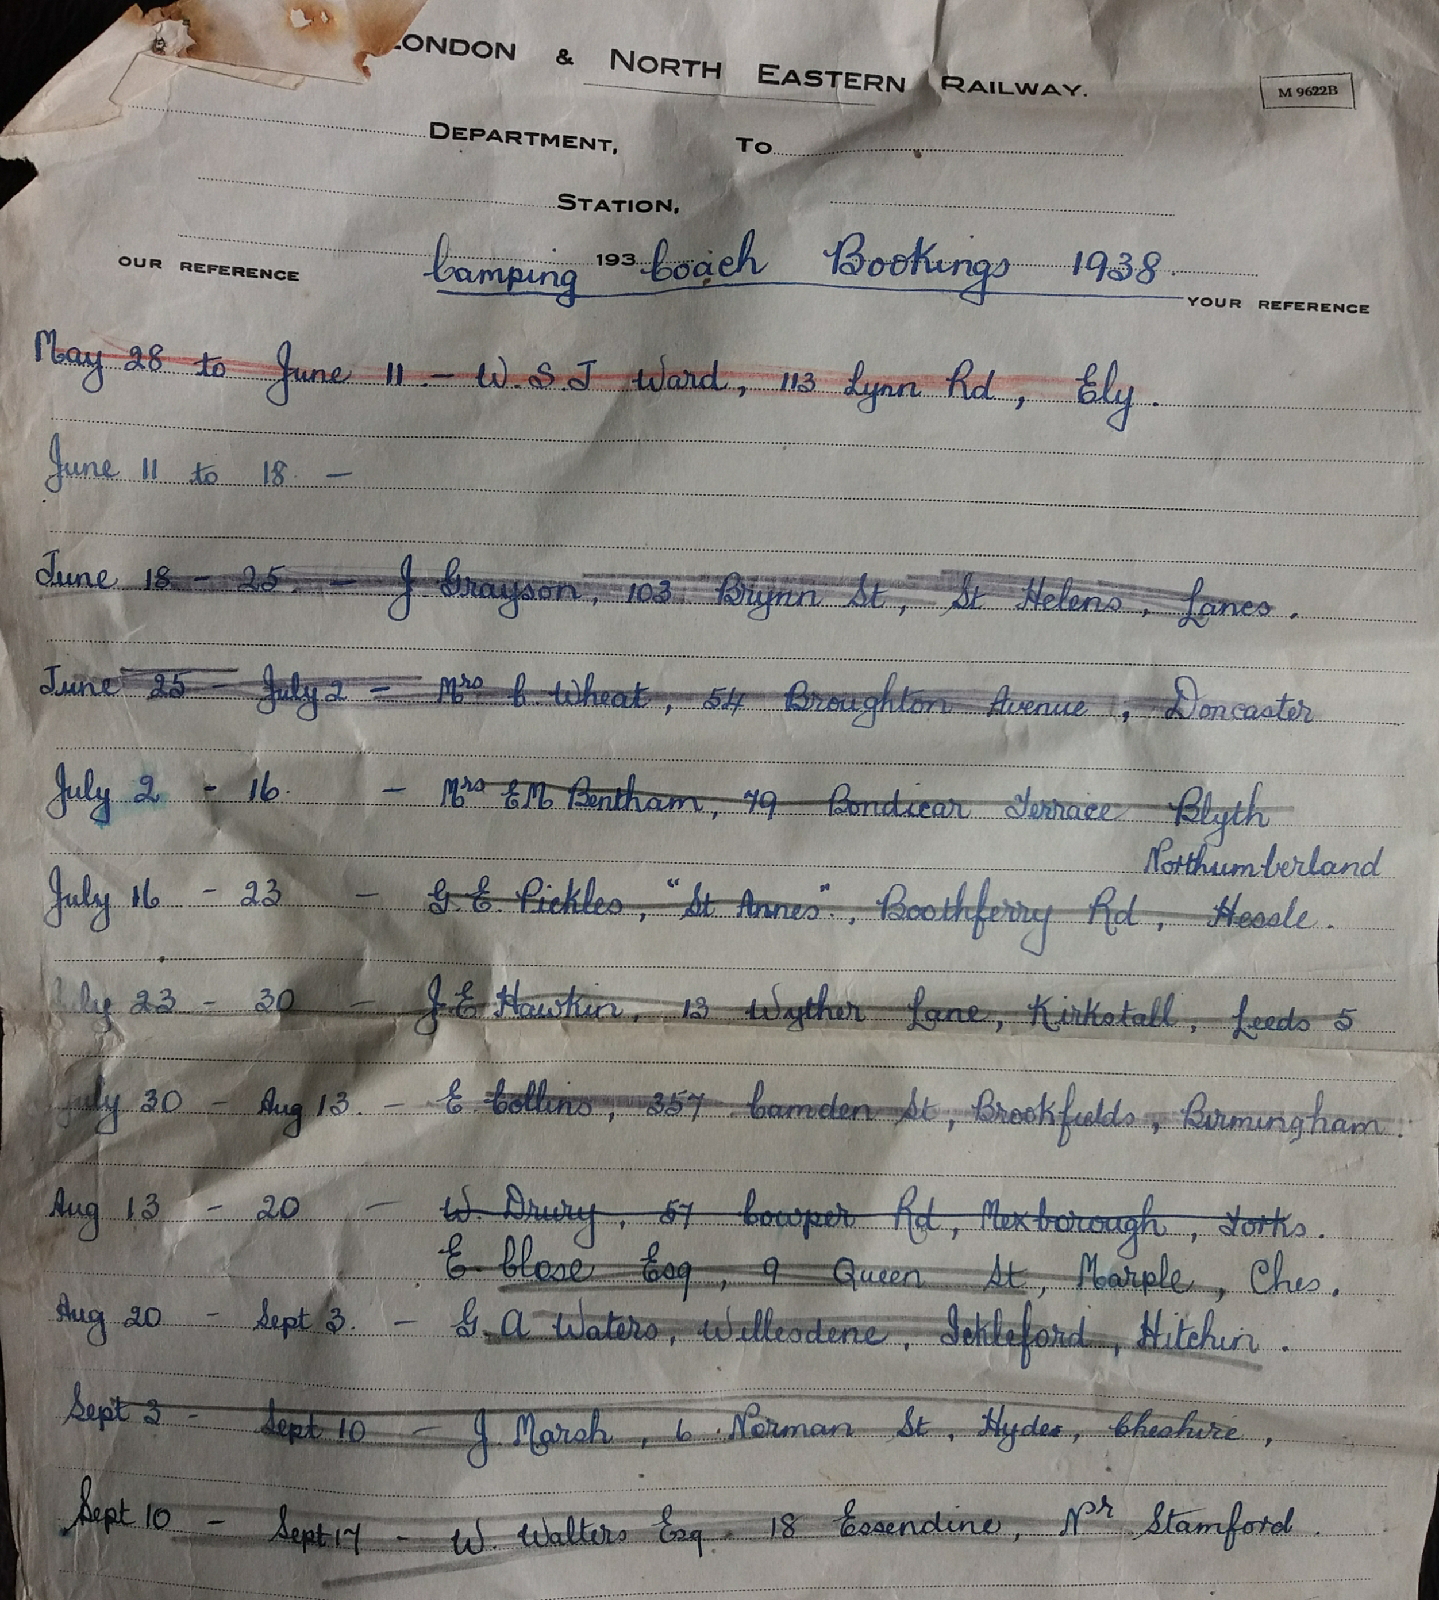 LONDON & NORTH EASTERN RAILWAY.
M 9622B
DEPARTMENT, To
STATION,
OUR REFERENCE Camping 193 Coach Bookings 1938 YOUR REFERENCE
May 28 to June 11 - W.S.J Ward, 113 Lynn Rd, Ely.
June 11 to 18 -
June 18 - 25 - J Grayson, 103 Brynn St, St Helens, Lancs.
June 25 - July 2 - Mrs C. Wheat, 54 Broughton Avenue, Doncaster
July 2 - 16 - Mrs EM Bentham, 79 Bondicar Terrace Blyth
Northumberland
July 16 - 23 - G.E. Pickles, "St Annes", Boothferry Rd, Hessle.
July 23 - 30 - J.E Hawkin, 13 Wyther Lane, Kirkstall, Leeds 5
July 30 - Aug 13 - E Collins, 357 Camden St, Brookfields, Birmingham.
Aug 13 - 20 - W. Drury, 57 Cowper Rd, Mexborough, Yorks.
E Close Esq, 9 Queen St, Marple, Ches.
Aug 20 - Sept 3. - G.A Waters, Willesdene, Ickleford, Hitchin.
Sept 3 - Sept 10 - J. Marsh, 6 Norman St, Hyde, Cheshire,
Sept 10 - Sept 17 - W. Walters Esq. 18 Essendine, Nr Stamford.